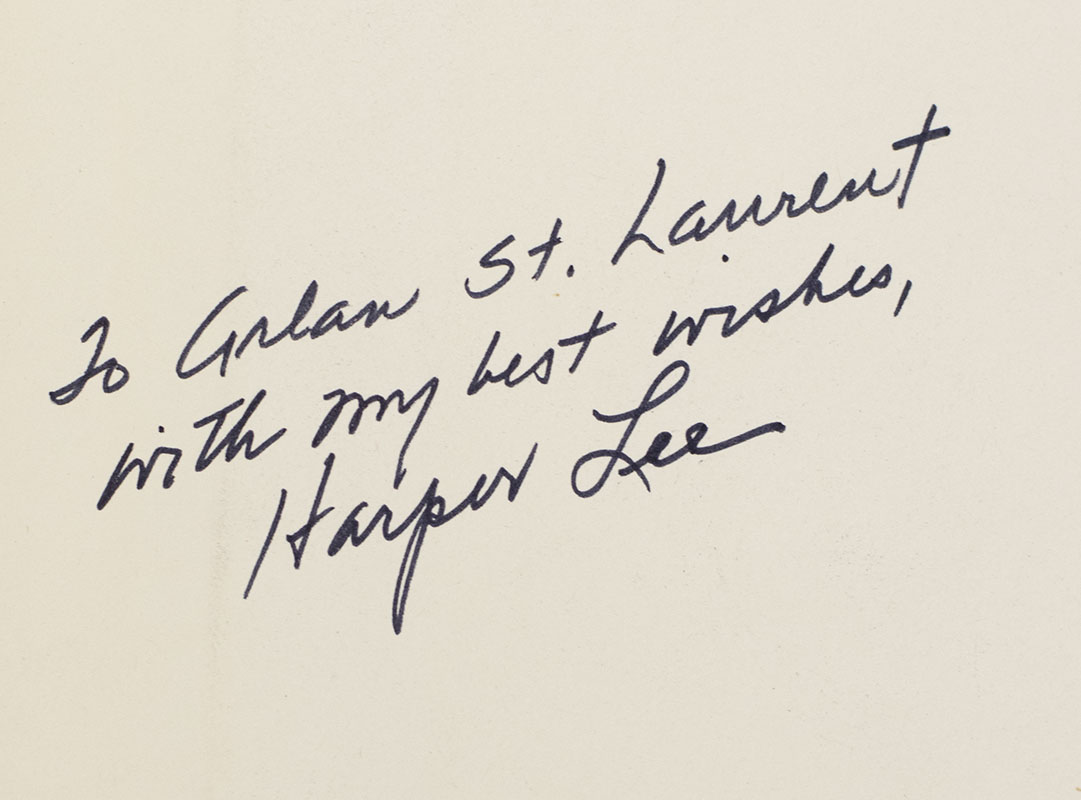 To Arlan St. Laurent
with my best wishes,
Harper Lee